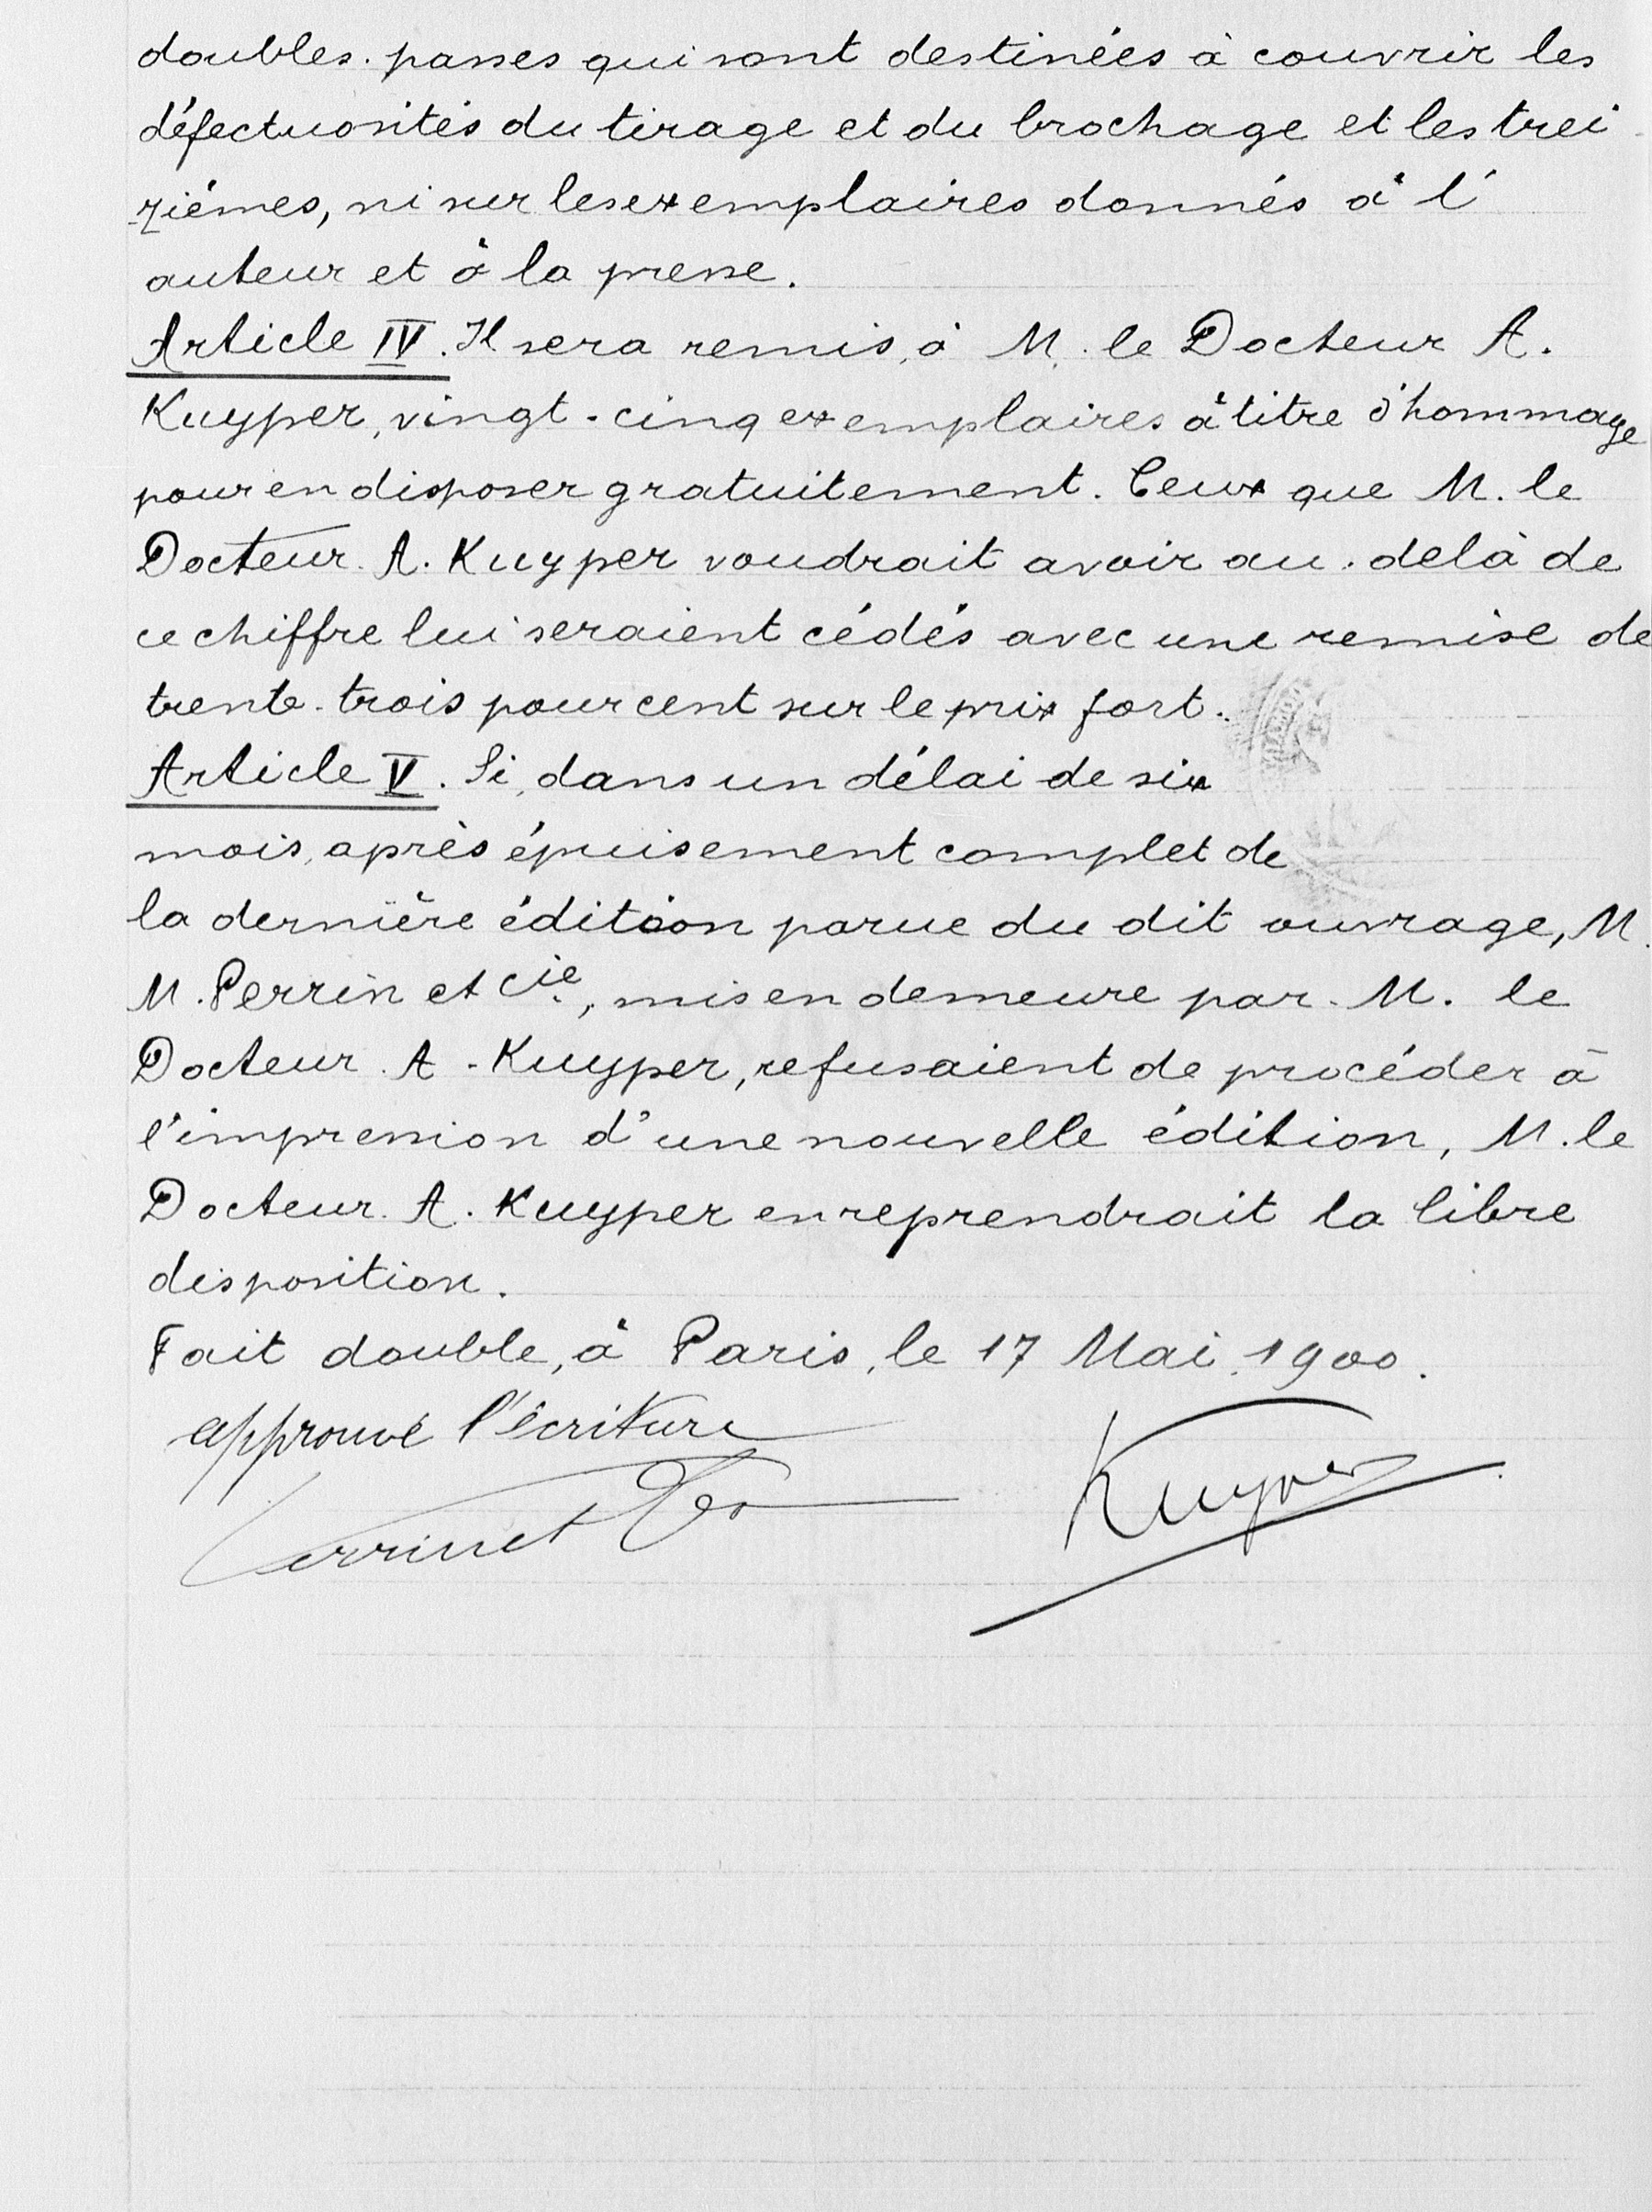 doubles-passes qui sont destinées à couvrir les
défectuosités du tirage et du brochage et les trei
zièmes, ni sur les exemplaires donnés à l'
auteur et à la presse.
Article IV. Il sera remis, à M. le Docteur A.
Kuyper, vingt-cinq exemplaires à titre d'hommage
pour en disposer gratuitement. Ceux que M. le
Docteur A. Kuyper voudrait avoir au-delà de
ce chiffre lui seraient cédés avec une remise de
trente-trois pour cent sur le prix fort.
Article V. Si, dans un délai de six
mois, après épuisement complet de
la dernière édition parue du dit ouvrage, M.
M. Perrin et Cie, mis en demeure par M. le
Docteur A. Kuyper, refusaient de procéder à
l'impression d'une nouvelle édition, M. le
Docteur A. Kuyper en reprendrait la libre
disposition.
Fait double, à Paris, le 17 Mai 1900.
approuvé l'écriture
Perrin et Cie Kuyper